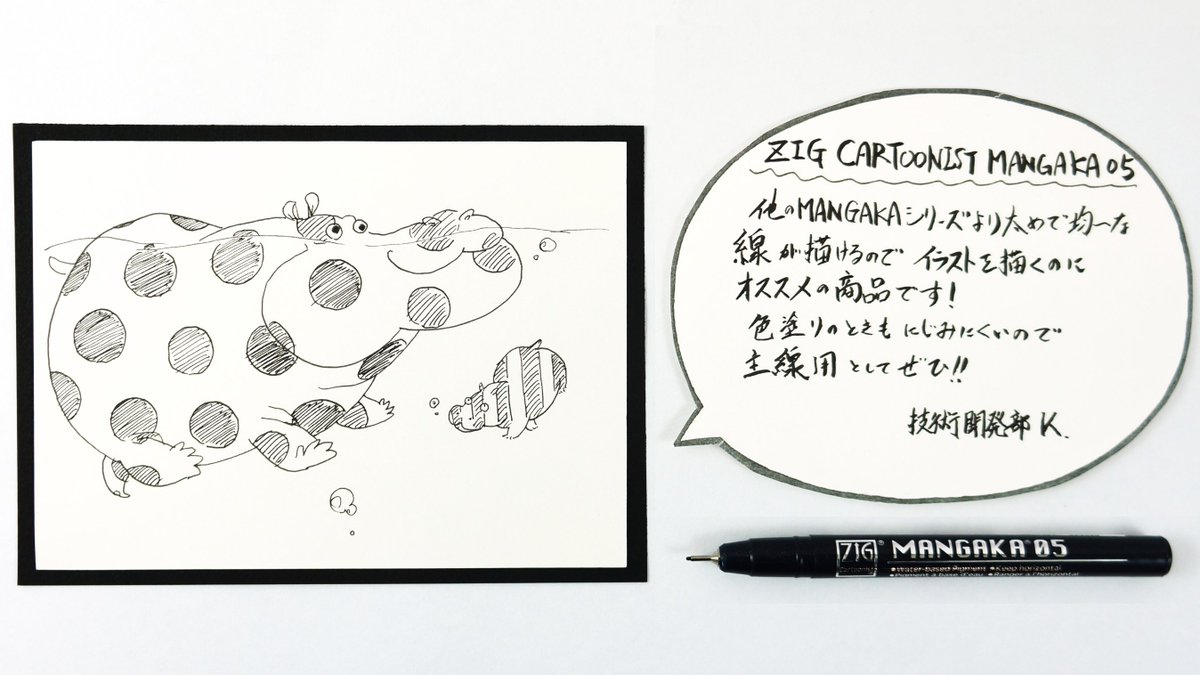 ZIG CARTOONIST MANGAKA 05
他のMANGAKAシリーズより太めで均一な
線が描けるので イラストを描くのに
オススメの商品です!
色塗りのときも にじみにくいので
主線用としてぜひ!!
技術開発部 K.
ZIG® MANGAKA® 05
Cartoonist
•Water-based Pigment •Keep horizontal
•Pigment à base d'eau •Ranger à l'horizontal